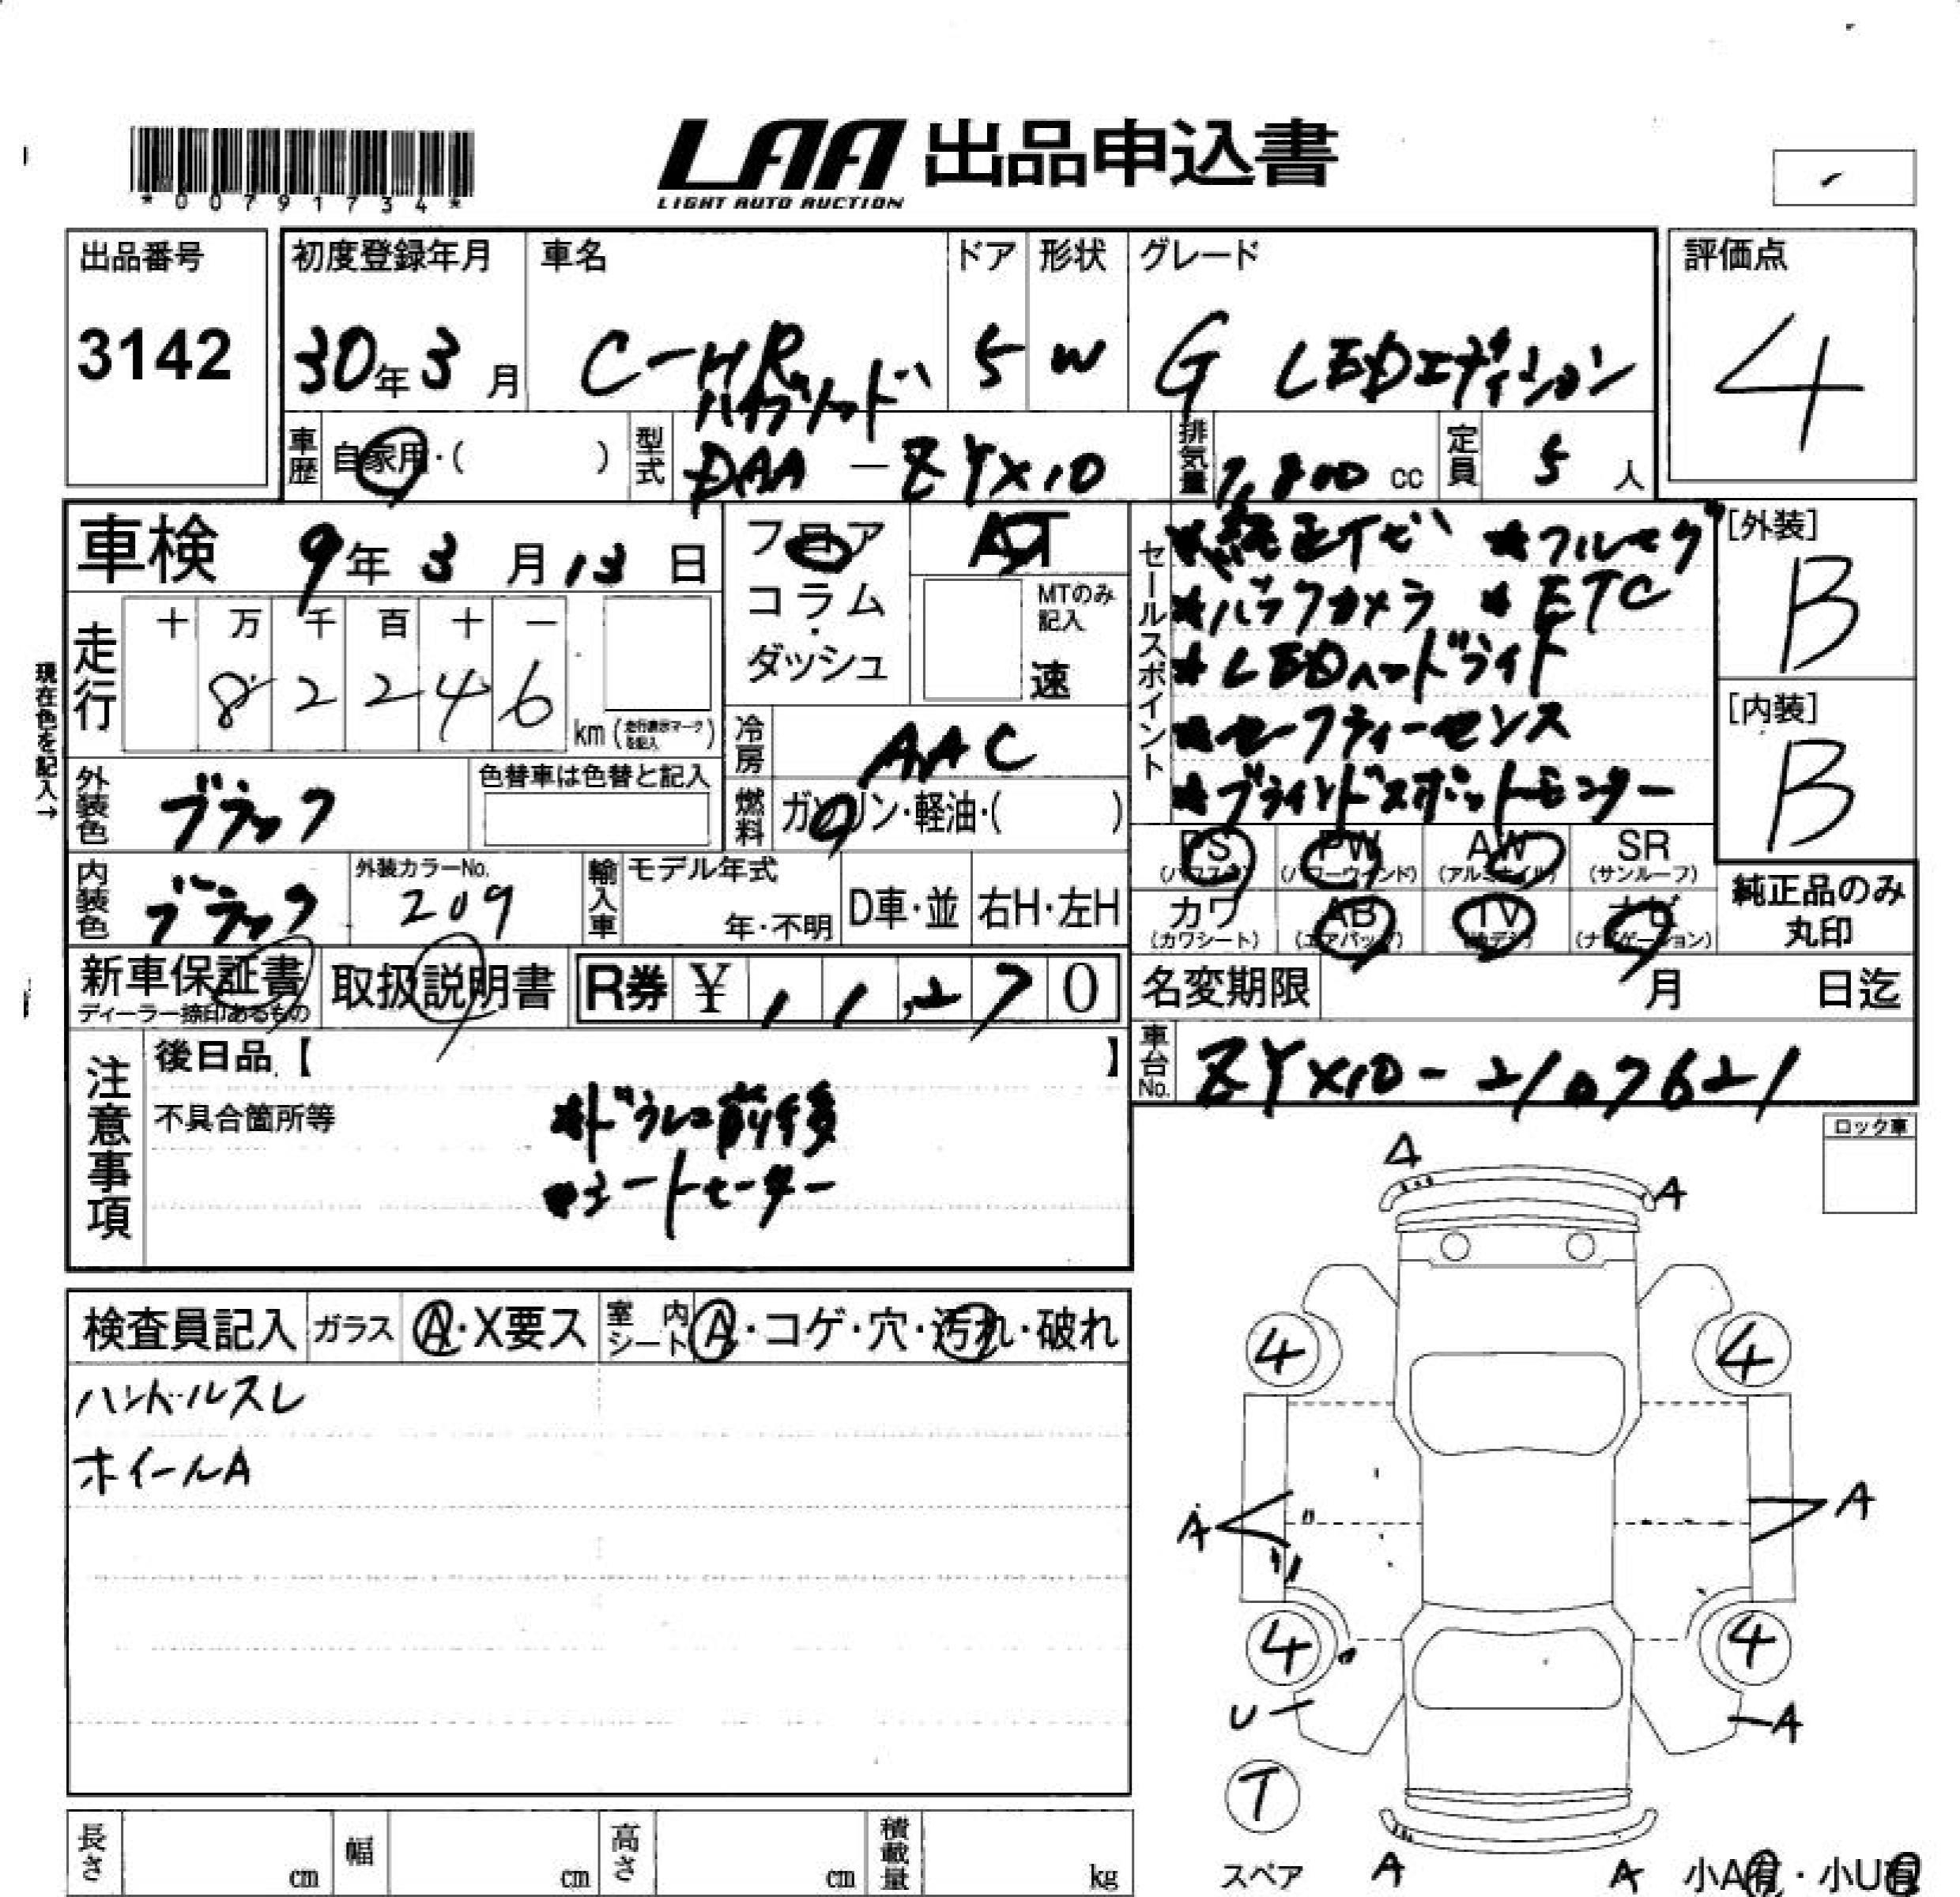 LAA 出品申込書
LIGHT AUTO AUCTION
*00791734*
出品番号
3142
初度登録年月
30年3月
車名
C-HR
ハイブリッド
ドア
5
形状
W
グレード
G LEDエディション
評価点
4
車歴 自家用・( )
型式 DAA-ZYX10
排気量 1,800 cc
定員 5 人
車検 9年3月13日
フロア
コラム
・
ダッシュ
AT
MTのみ
記入
速
セールスポイント
★純正ナビ ★フルセグ
★バックカメラ ★ETC
★LEDヘッドライト
★セーフティーセンス
★ブラインドスポットモニター
[外装]
B
[内装]
B
現在色を記入→
走行
十 万 千 百 十 一
8 2 2 4 6
km (走行表示マークを記入)
冷房 AAC
燃料 ガソリン・軽油・( )
外装色 ブラック
色替車は色替と記入
内装色 ブラック
外装カラーNo.
209
輸入車
モデル年式
年・不明
D車・並
右H・左H
PS
(パワステ)
PW
(パワーウインド)
AW
(アルミホイル)
SR
(サンルーフ)
カワ
(カワシート)
AB
(エアバッグ)
TV
ナビ
(ナビゲーション)
純正品のみ
丸印
新車保証書
ディーラー捺印あるもの
取扱説明書
R券 ¥ 11,270
名変期限 月 日迄
車台No. ZYX10-2107621
注意事項
後日品【 】
不具合箇所等
★ドラレコ前後
★シートヒーター
ロック車
検査員記入
ガラス A・X要ス
室内シート A・コゲ・穴・汚れ・破れ
ハンドルスレ
ホイールA
A
A
4
4
A
A
4
4
U
A
T
スペア
A
A
小A有・小U有
長さ cm
幅 cm
高さ cm
積載量 kg